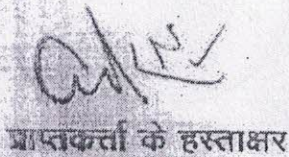 प्राप्तकर्ता के हस्ताक्षर